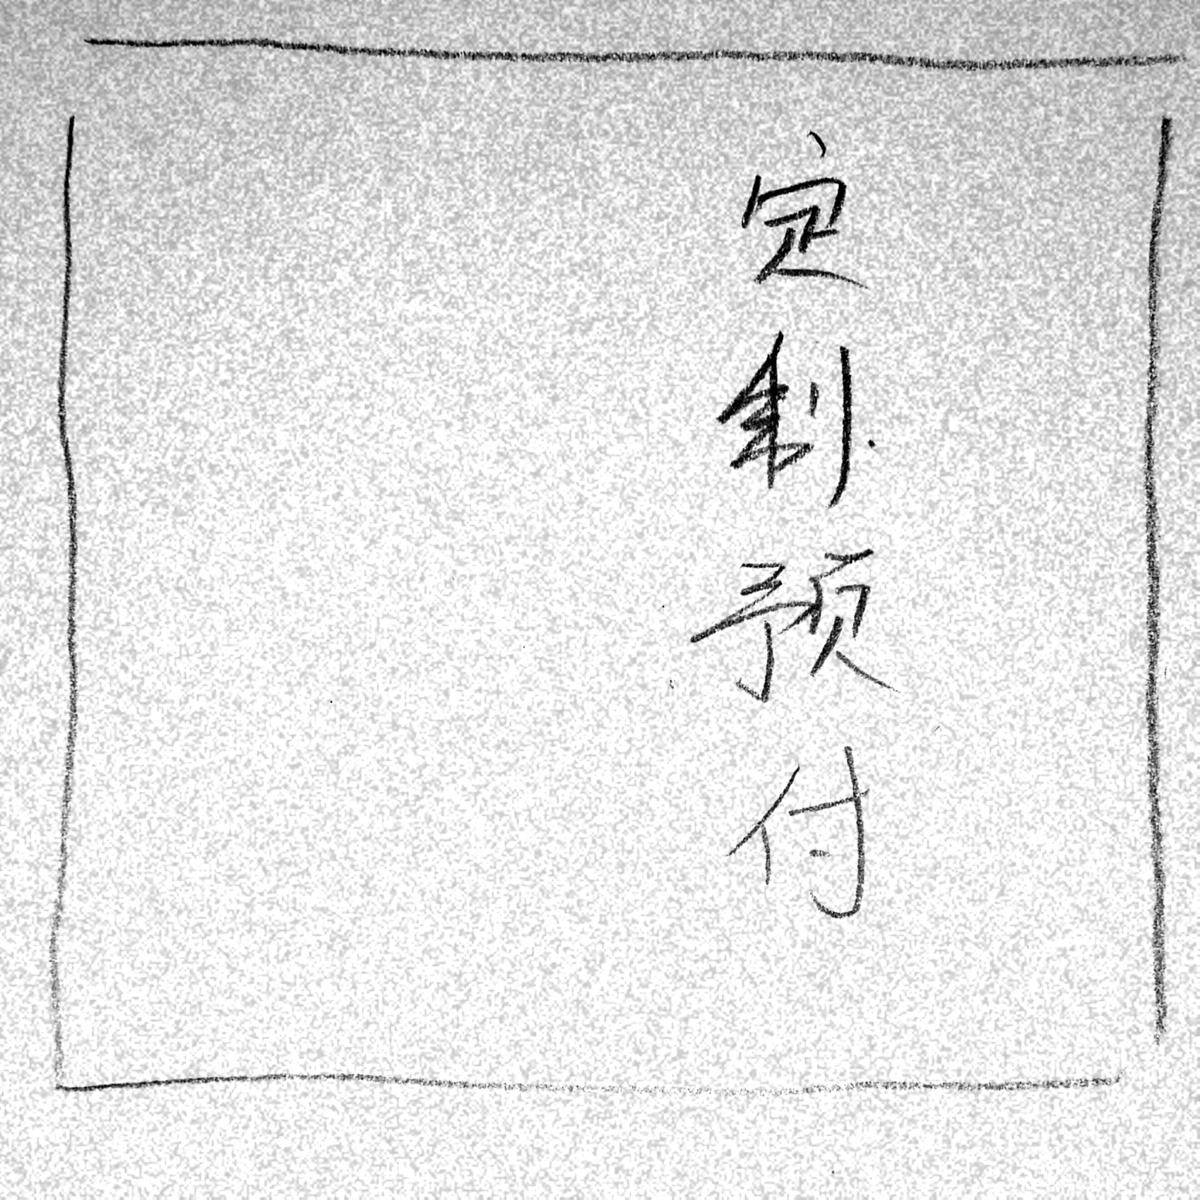 定制预付